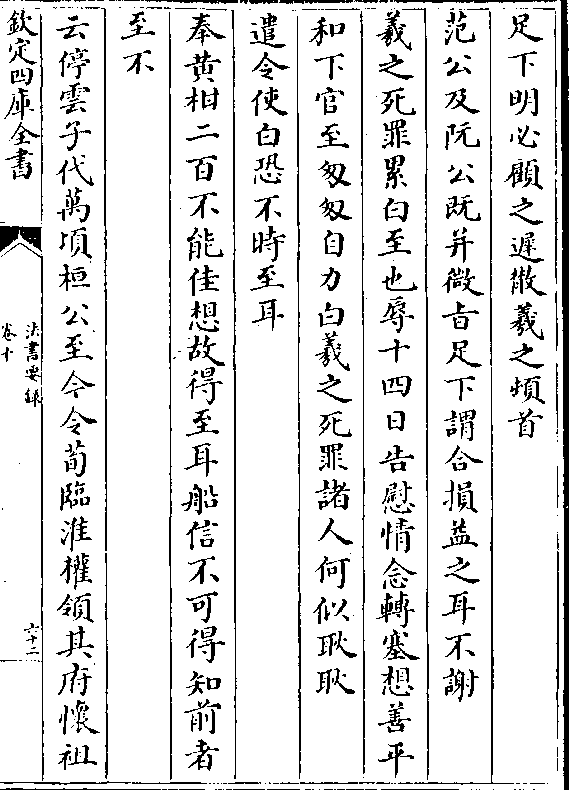 足下明必顧之遲散羲之頓首
范公及阮公既并微㫖足下謂合損益之耳不謝
羲之死罪累白至也辱十四日告慰情念轉塞想善平
和下官至匆匆自力白羲之死罪諸人何似耿耿
遣令使白恐不時至耳
奉黄柑二百不能佳想故得至耳船信不可得知前者
至不
云停雲子代萬頃桓公至今令荀臨淮權領其府懷祖
欽定四庫全書
法書要録
卷十
六十二